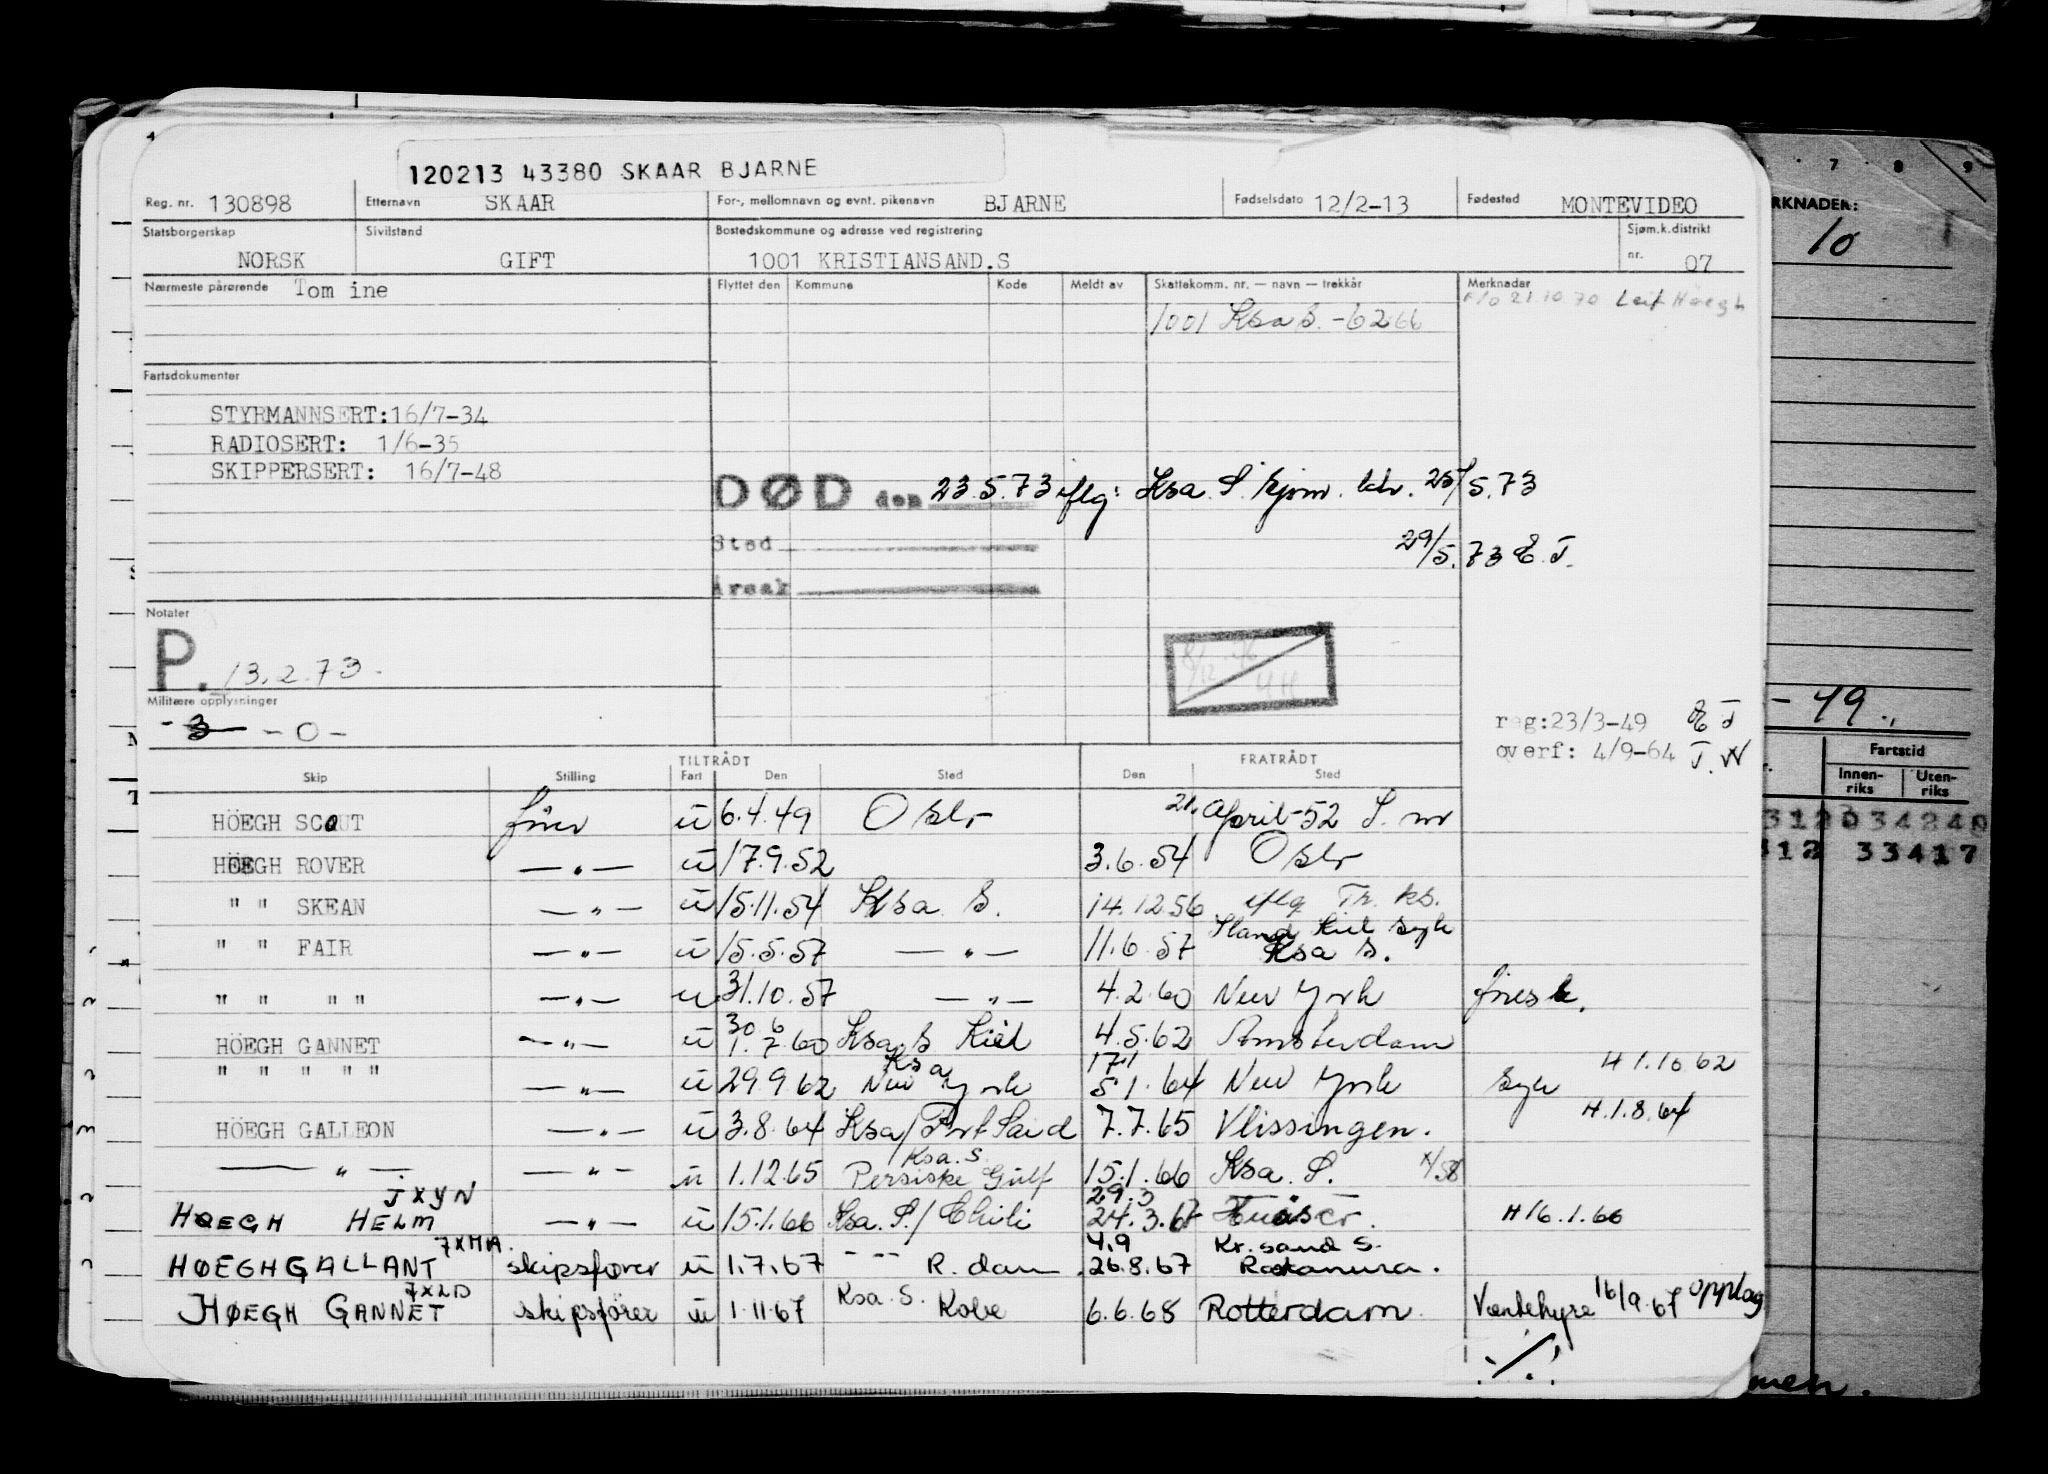 120213 43380 SKAAR BJARNE
Reg. nr. 130898 Etternavn SKAAR For-, mellomnavn og evnt. pikenavn BJARNE Fødselsdato 12/2-13 Fødested MONTEVIDEO
Statsborgerskap Sivilstand Bostedskommune og adresse ved registrering Sjøm.k.distrikt
NORSK GIFT 1001 KRISTIANSAND.S nr. 07
Nærmeste pårørende Tom ine Flyttet den Kommune Kode Meldt av Skattekomm. nr. — navn — trekkår Merknader
F/o 21.10 70 Leif Høegh
1001 Ksa S. -62 66
Fartsdokumenter
STYRMANNSERT: 16/7-34
RADIOSERT: 1/6-35
SKIPPERSERT: 16/7-48
DØD den 23.5.73 iflg: Ksa. S. sjøm. ktr. 25/5.73
Sted 29/5.73 E. T.
Årsak
Notater
P. 13.2.73.
Militære opplysninger
- 3 - 0 -
reg: 23/3-49 E T
overf: 4/9-64 T. W
TILTRÅDT FRATRÅDT
Skip Stilling Fart Den Sted Den Sted
HÖEGH SCOUT fører u 6.4.49 Oslo 21. April-52 S. nr
HÖEGH ROVER —"— u 17.9.52 3.6.54 Oslo
" " SKEAN —"— u 15.11.54 Ksa S. 14.12.56 iflg Tr. ks.
" " FAIR —"— u 15.5.57 —"— 11.6.57 Ksa S.
" " " " —"— u 31.10.57 —"— 4.2.60 New York
30 6
HÖEGH GANNET —"— u 1.7.60 Ksa S Kiel 4.5.62 Amsterdam
Ksa 17.1 H 1.10 62
" " " " " —"— u 29.9.62 New York 5.1.64 New York syk
H.1.8.64
HÖEGH GALLEON —"— u 3.8.64 Ksa/Port Said 7.7.65 Vlissingen.
Ksa. S.
—"— —"— u 1.12.65 Persiske Gulf 15.1.66 Ksa. S.
JXYN 29.3
HØEGH HELM —"— u 15.1.66 Ksa. S./Chili 24.3.67 H 16.1.66
7XMA. 4.9 Kr.sand S.
HØEGH GALLANT skipsfører u 1.7.67 - - - R. dam 26.8.67
7XLD
HØEGH GANNET skipsfører u 1.11.67 Ksa. S. Kobe 6.6.68 Rotterdam Ventehyre 16/9.67 opplag
./.
7 8 9
RKNADER:
10
- 49.
Fartstid
Innen-riks Uten-riks
312034240
312 33417
men.